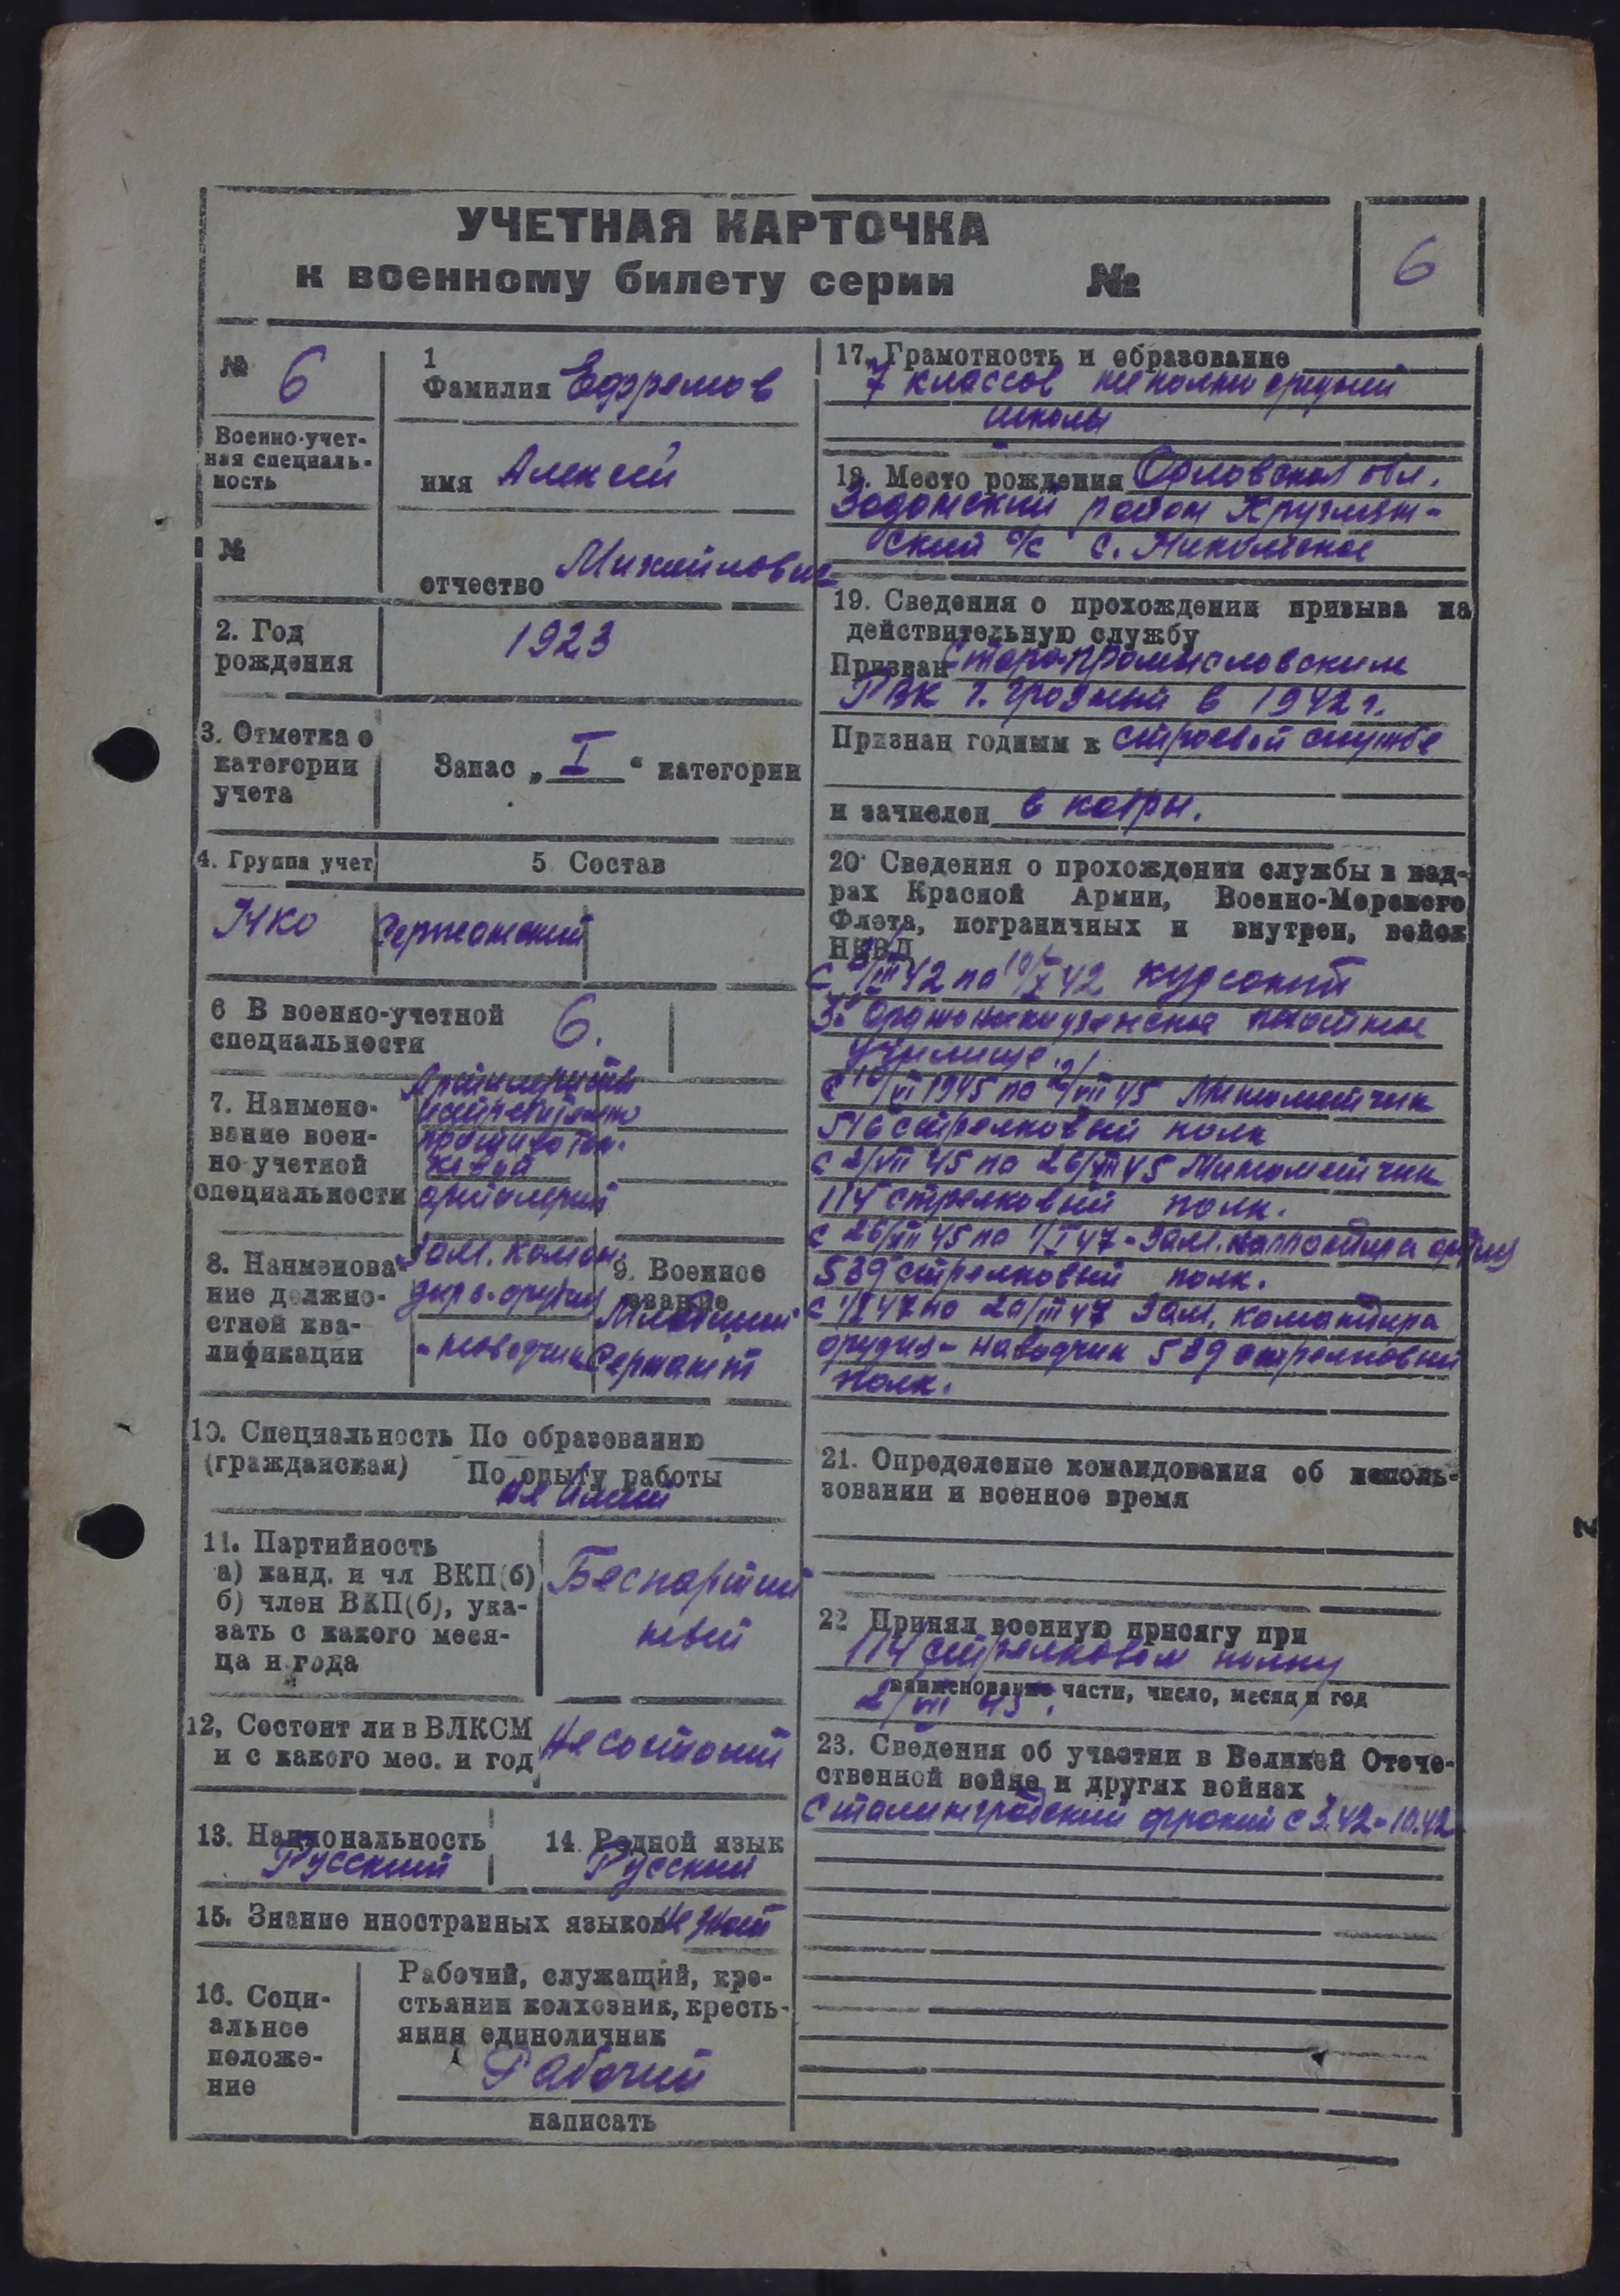 УЧЕТНАЯ КАРТОЧКА
к военному билету серии №
6
№ 6
Военно-учет-
ная специаль-
ность
№
1
Фамилия Ефремов
имя Алексей
отчество Михайлович
2. Год
рождения
1923
3. Отметка о
категории
учета
Запас „ I “ категории
4. Группа учет
5. Состав
НКО
Сержанский
6 В военно-учетной
специальности
6.
7. Наимено-
вание воен-
но-учетной
специальности
Артиллерист
противотан.
артилерий
8. Наименова-
ние должно-
стной ква-
лификации
Зам. коман-
дира орудия
-наводчик
9. Военное
звание
Младший
Сержант
10. Специальность По образованию
(гражданская) По опыту работы
11. Партийность
а) канд. и чл ВКП(б)
б) член ВКП(б), ука-
зать с какого меся-
ца и года
Беспартий
ный
12, Состоит ли в ВЛКСМ
и с какого мес. и год
Не состоит
13. Национальность
Русский
14. Родной язык
Русский
15. Знание иностранных языков не знает
16. Соци-
альное
положе-
ние
Рабочий, служащий, кре-
стьянин колхозник, кресть-
янин единоличник
Рабочий
написать
17. Грамотность и образование
7 классов неполно средний
школы
18. Место рождения Орловская обл.
Задонский район
ский с/с с. Никольское
19. Сведения о прохождении призыва на
действительную службу
Призван Старопромысловским
РВК г. Грозный в 1942 г.
Признан годным к строевой службе
и зачислен в кадры.
20. Сведения о прохождении службы в кад-
рах Красной Армии, Военно-Морского
Флота, пограничных и внутрен, войск
НКВД
42 по 10/X 42 курсант
3е Орджоникидзенское пехотное
училище.
с 10/VI 1945 по 2/VII 45 Минометчик
546 стрелковый полк
с 2/VII 45 по 26/VII 45 Минометчик
114 стрелковый полк.
с 26/VII 45 по 1/I 47 - Зам. командира орудия
589 стрелковый полк.
с 1/I 47 по 20/III 47 Зам. командира
орудия - наводчик 589 стрелковый
полк.
21. Определение командования об исполь-
зовании и военное время
22 Принял военную присягу при
114 стрелковом полку
наименование части, число, месяц и год
2/VII 45.
23. Сведения об участии в Великой Отече-
ственной войне и других войнах
Сталинградский фронт с 3.42 - 10.42